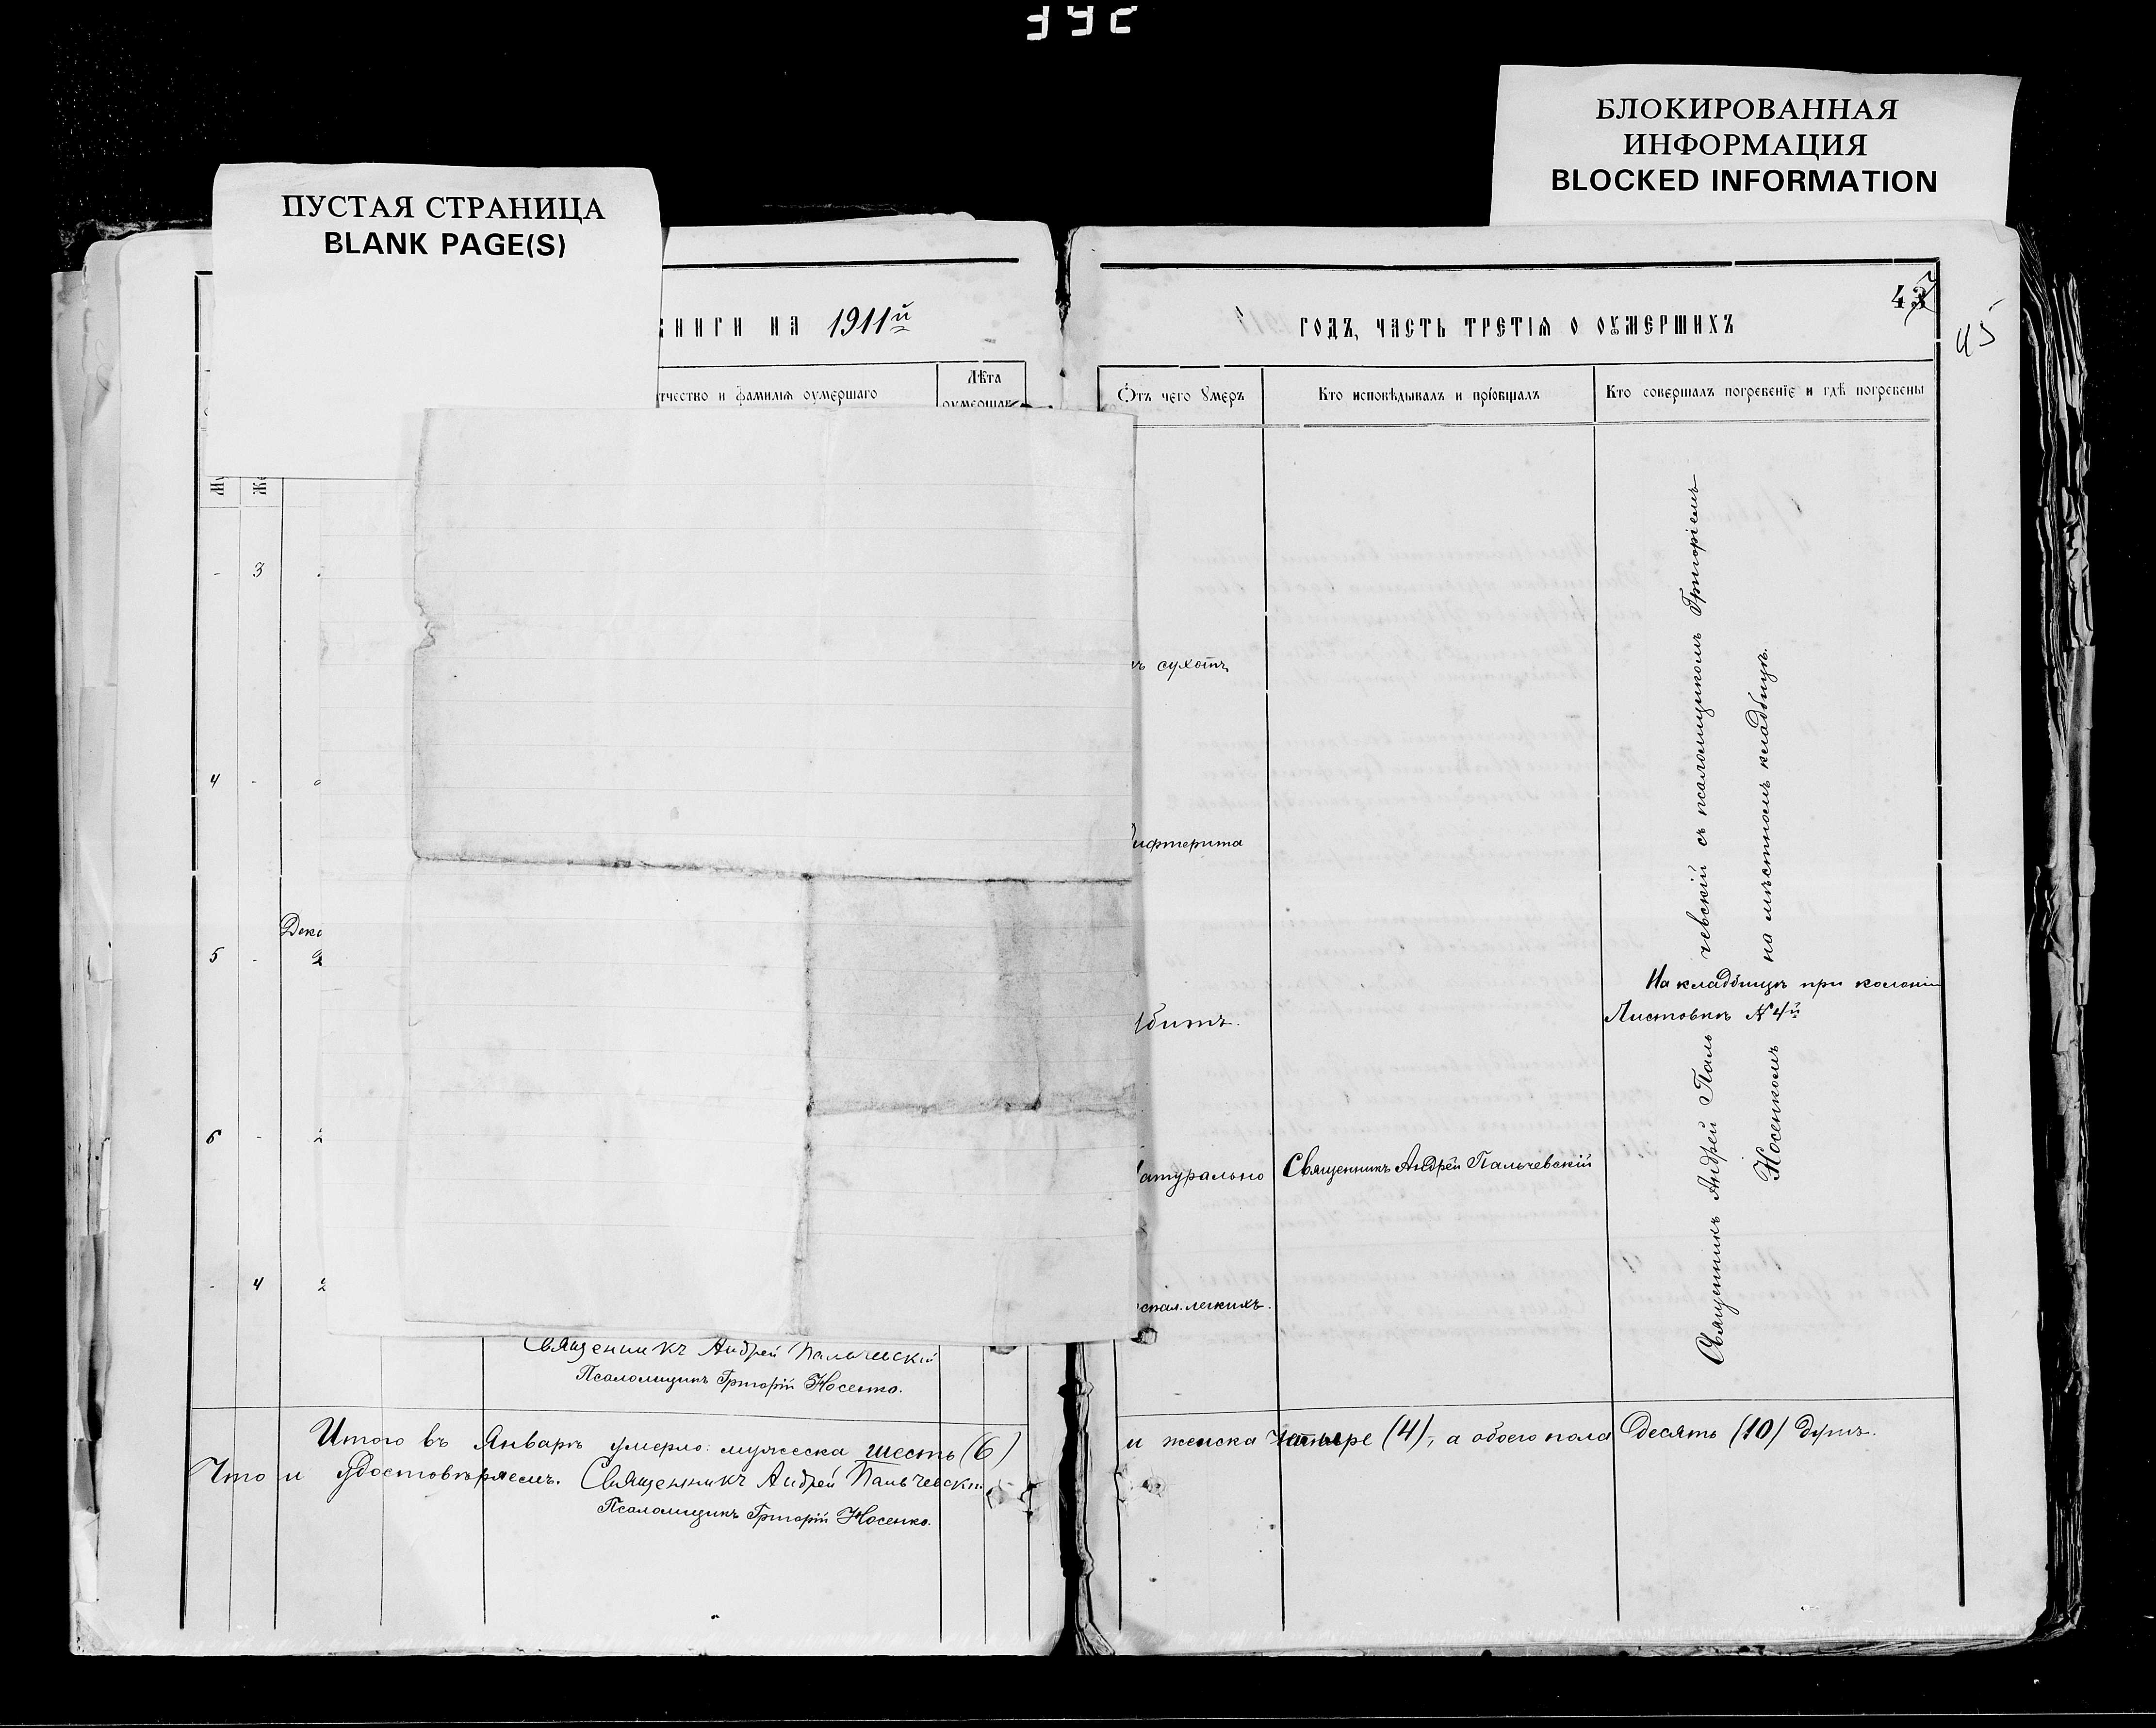 БЛОКИРОВАННАЯ
ИНФОРМАЦИЯ
BLOCKED INFORMATION
ПУСТАЯ СТРАНИЦА
BLANK PAGE(S)
ниги на 1911й
тчество и фамилія оумершаго
Лѣта
оумершаг
3
4
Дека
5
6
4
Священникъ Андрей Пальчевскій
Псаломщикъ Григорій Носенко.
Итого въ Январѣ умерло: мужеска шесть (6)
Что и удостовѣряемъ. Священникъ Андрей Пальчевскій
Псаломщикъ Григорій Носенко.
43
45
годъ, часть третія о оумершихъ
Отъ чего умеръ
Кто исповѣдывалъ и пріобщалъ
Кто совершалъ погребеніе и гдѣ погребены
сухотъ
ифтерита
битъ.
атурально
Священникъ Андрей Пальчевскій
спал. легкихъ.
Священникъ Андрей Паль
чевскій съ псаломщикомъ Григоріемъ
Носенкомъ
на мѣстномъ кладбищѣ.
На кладбищѣ при колоніи
Листовкѣ №4й
и женска четыре (4), а обоего пола Десять (10) душъ.